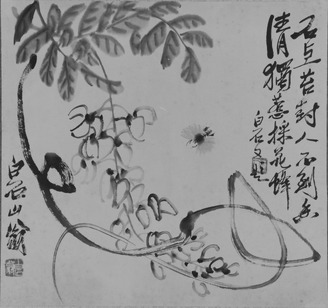 石上苔封人不到香
清獨惹採花蜂
白石又題
白石山翁